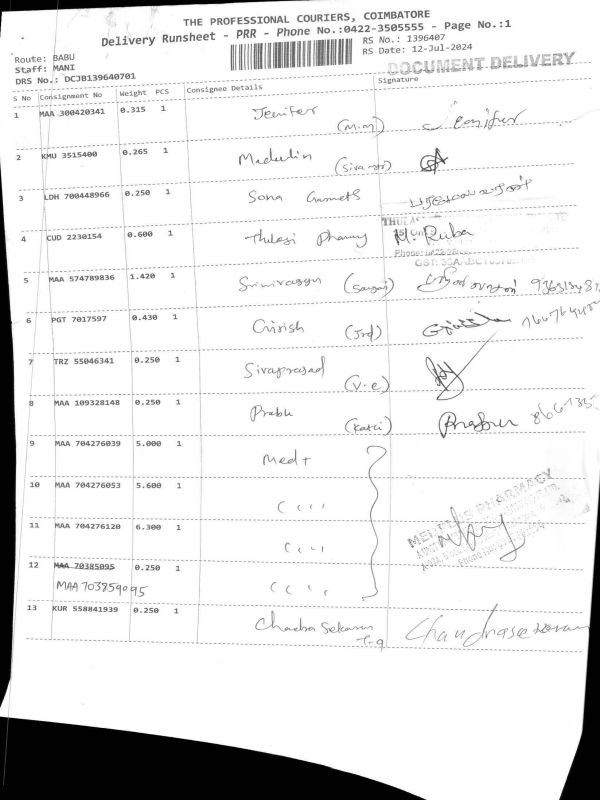 THE PROFESSIONAL COURIERS, COIMBATORE
Delivery Runsheet - PRR - Phone No.:0422-3505555 - Page No.:1
Route: BABU
Staff: MANI
DRS No.: DCJB139640701
RS No.: 1396407
RS Date: 12-Jul-2024
DOCUMENT DELIVERY
S No Consignment No Weight PCS Consignee Details Signature
1 MAA 300420341 0.315 1 Jenifer (M.M) Jenifer
2 KMU 3515400 0.265 1 Madulin
3 LDH 700448966 0.250 1 Sona Garmets
4 CUD 2230154 0.600 1 Thulasi Pharmy M. Ruba
5 MAA 574789836 1.420 1 Srinivasan
6 PGT 7017597 0.430 1 Girish (Jrd)
7 TRZ 55046341 0.250 1 Sivaprasad (V.e)
8 MAA 109328148 0.250 1 Prabu Prabu
9 MAA 704276039 5.000 1 Med+
10 MAA 704276053 5.600 1
11 MAA 704276120 6.300 1
MEDPLUS PHARMACY
12 MAA 70385095 0.250 1
MAA 703859095
13 KUR 558841939 0.250 1 Chandra Sekaran Chandrasekaran